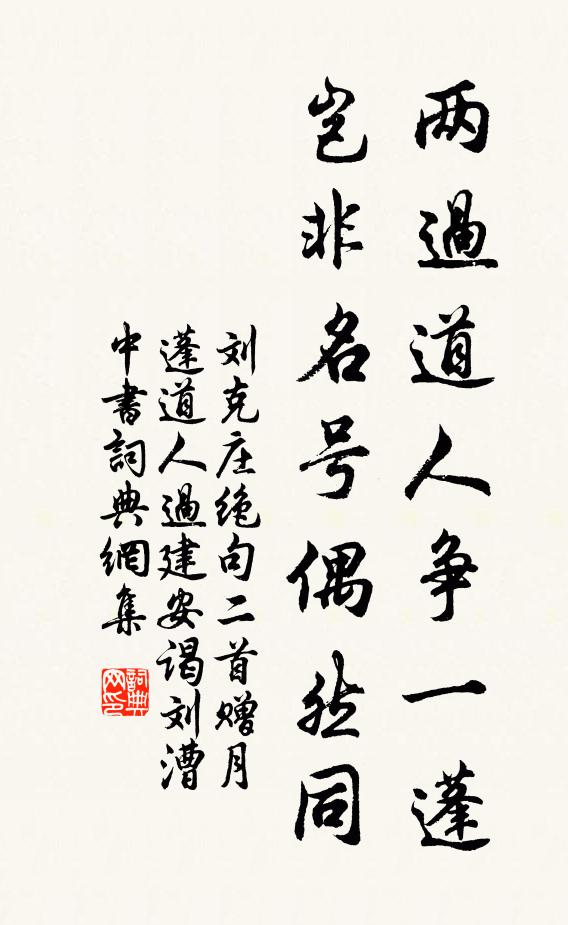 两過道人争一蓬
岂非名号偶然同
刘克庄绝句二首赠月
蓬道人過建安谒刘漕
中書詞典網集
詞典网印